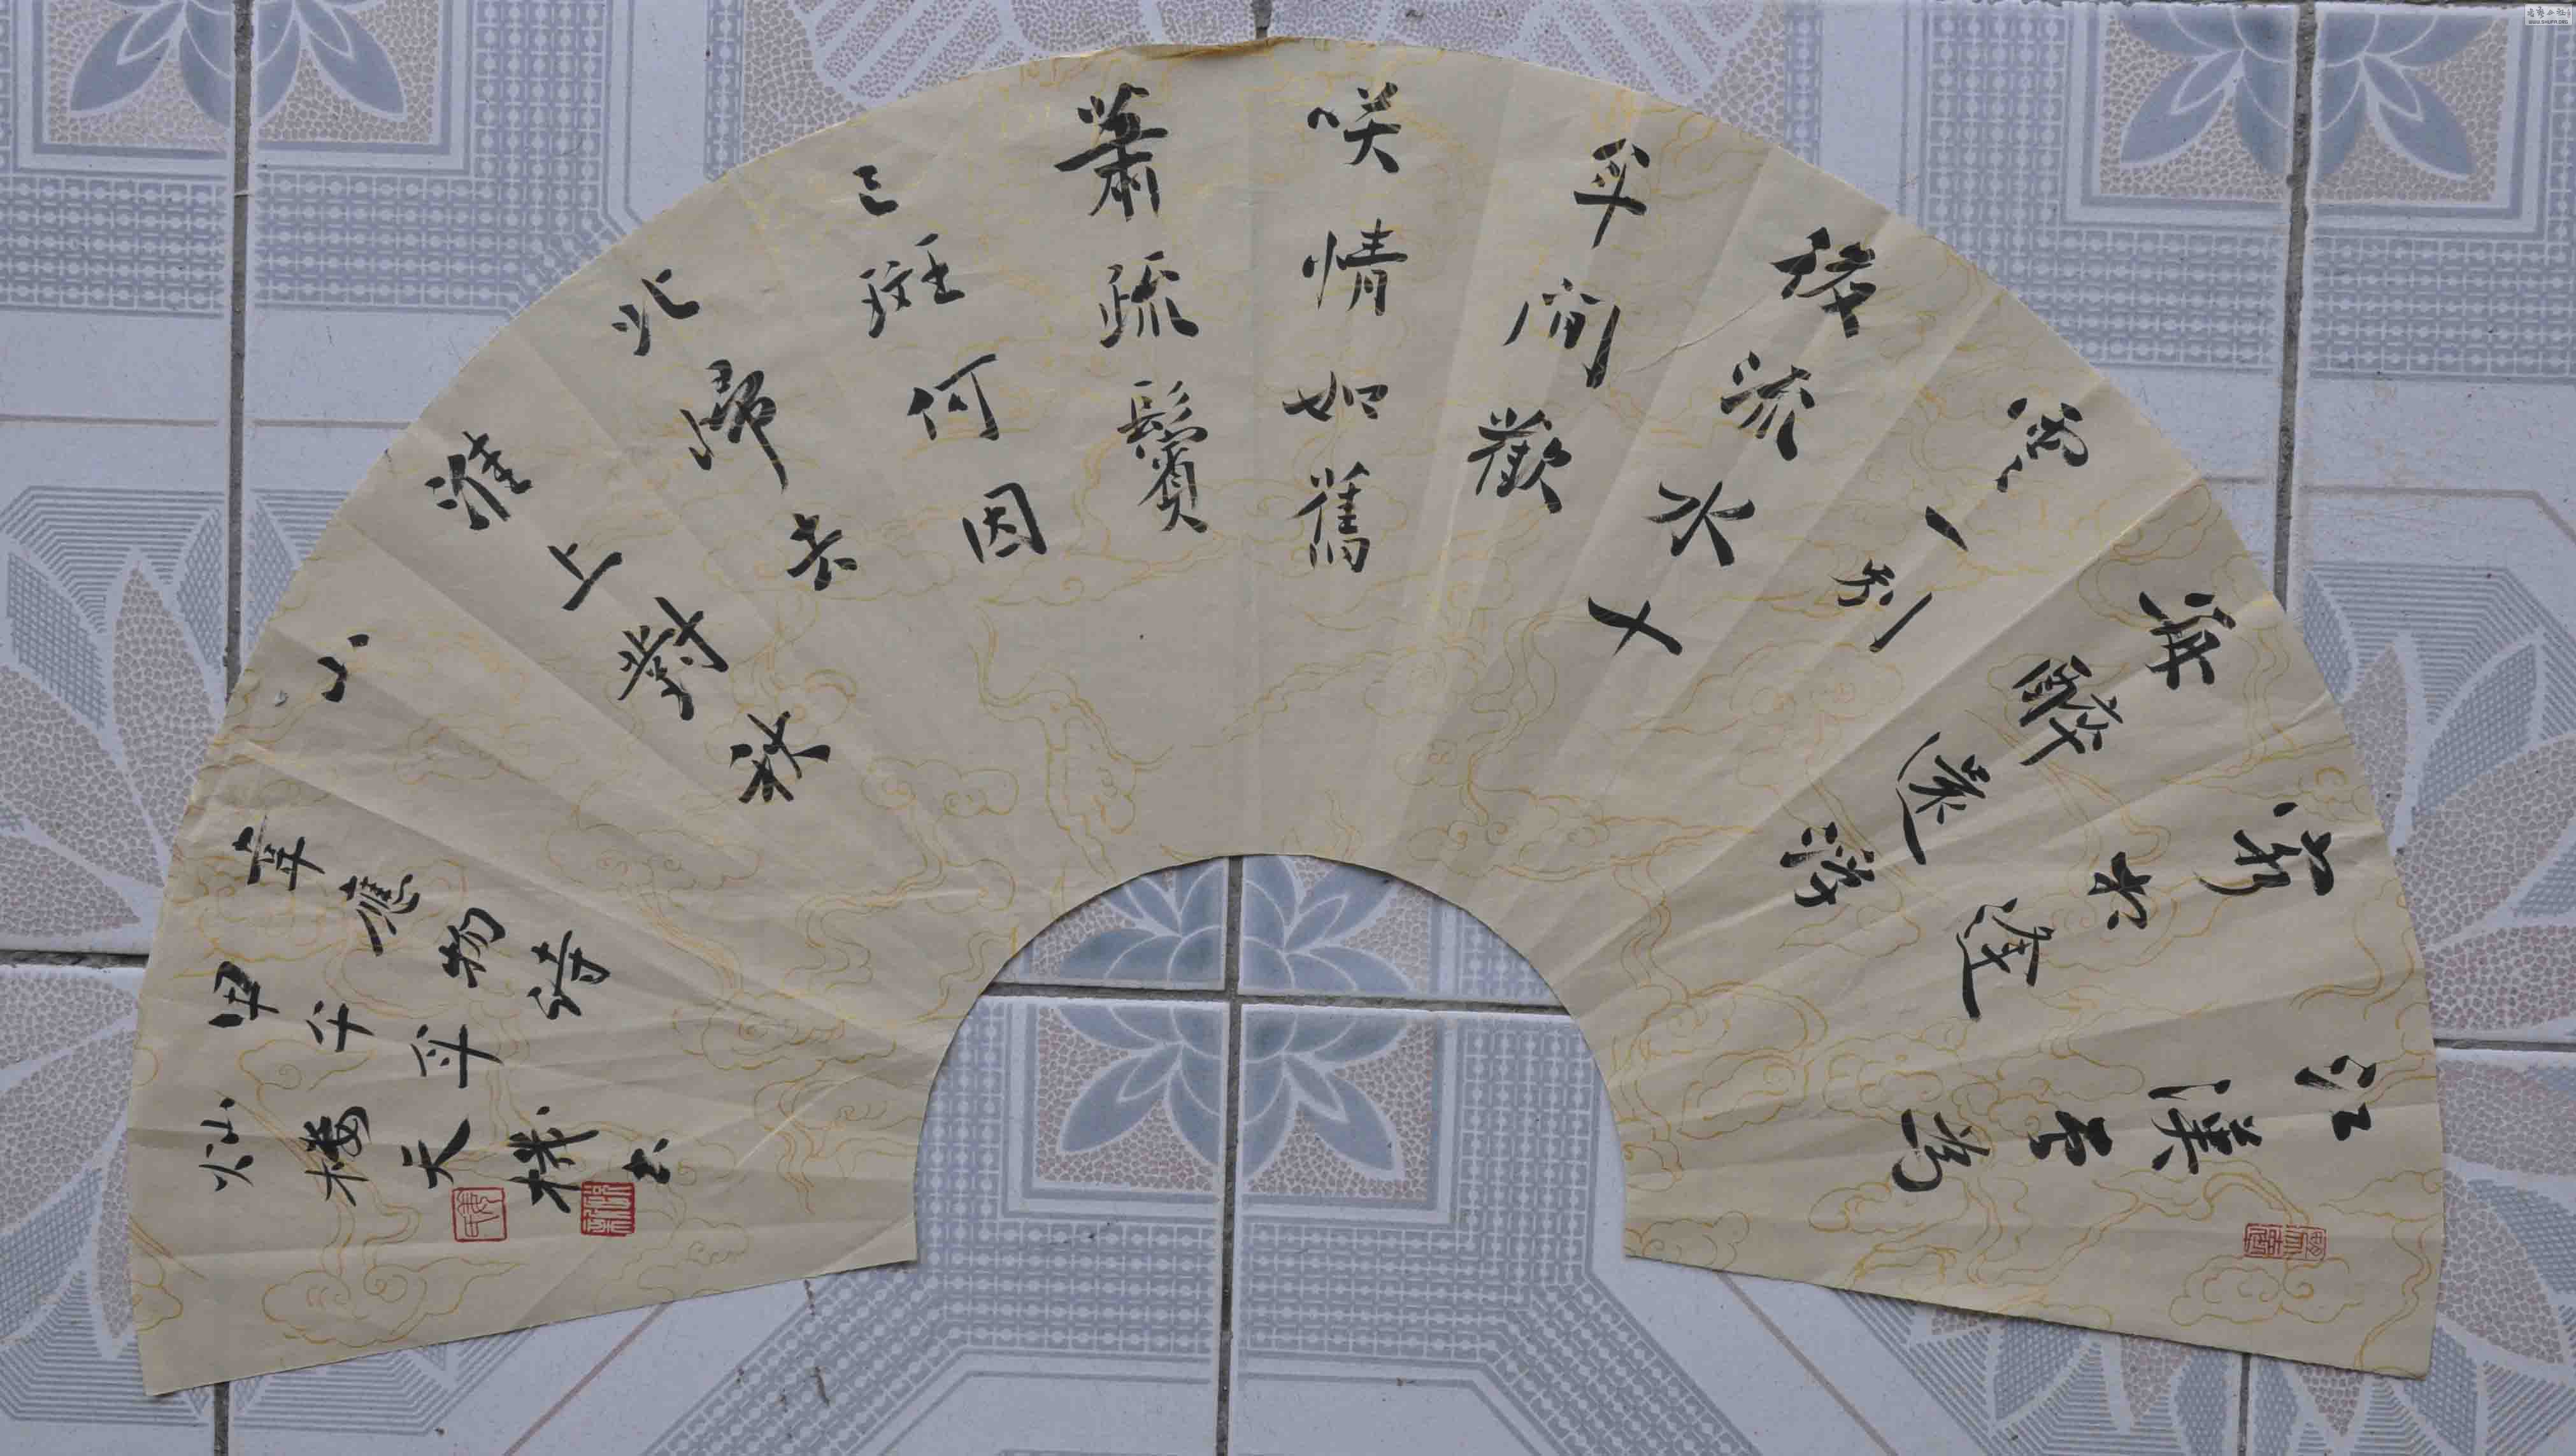 江漢曾為
客相逢
每醉還浮
雲一別
後流水十
年間歡
咲情如舊
蕭疏鬢
已斑何因
北歸去
淮上對秋
山
韋應物詩
甲午年
灿楼天機书